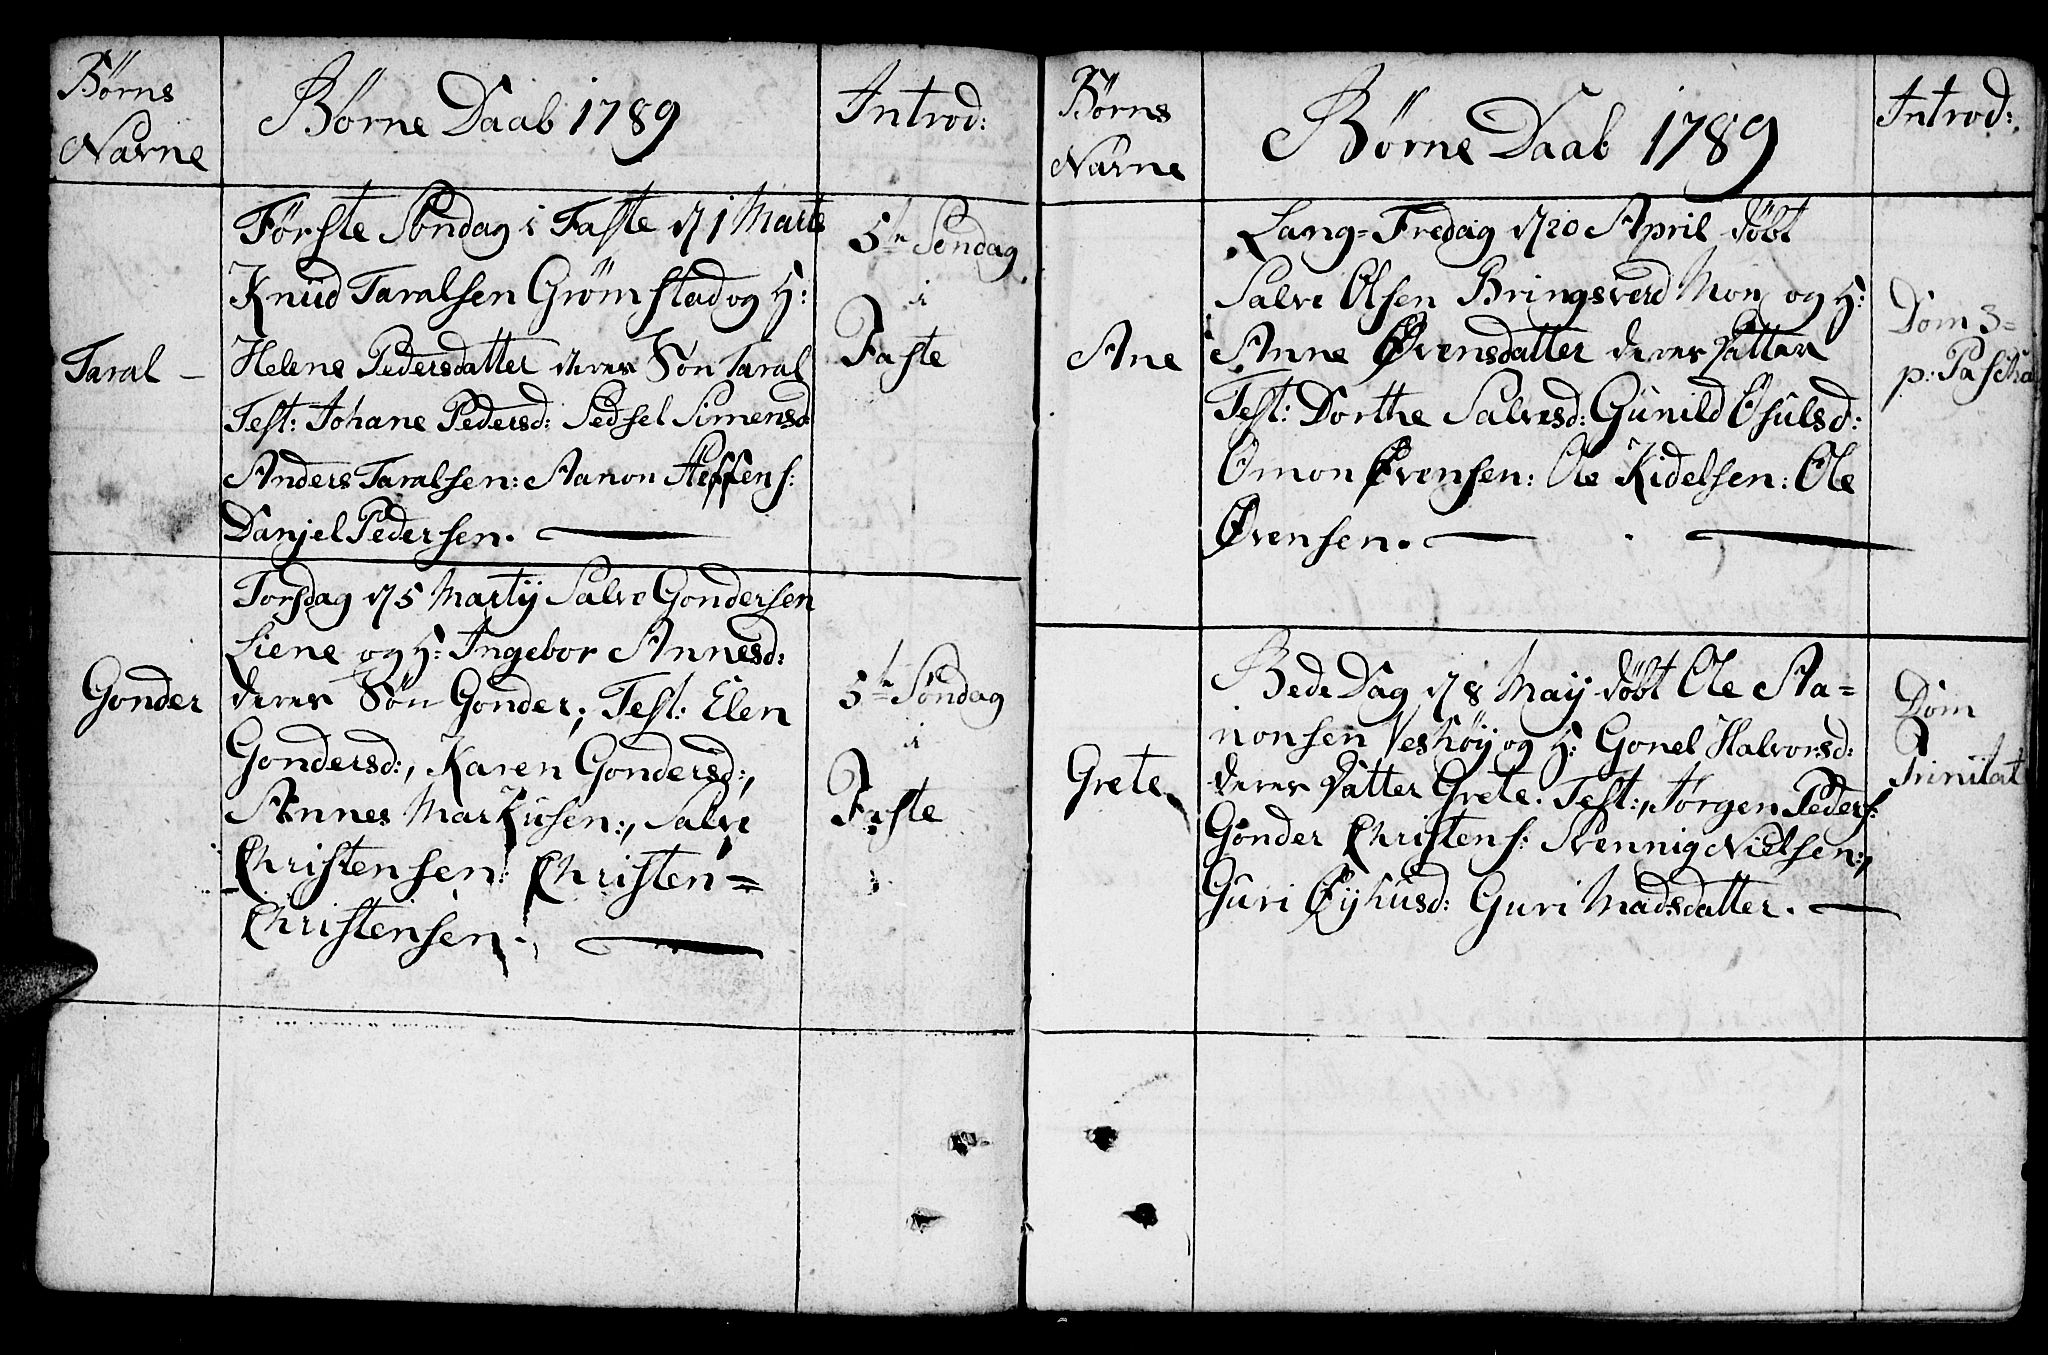 Børns
Navne
Børne Daab 1789
Introd:
Taral –
Første Søndag i Faste d 1 Marts
Knud Taralsen Grömstad og H:
Helene Pedersdatter deres Søn Taral
Test: Johane Pedersd: Sedsel Simensd:
Anders Taralsen: Aanon Steffens:
Danjel Pedersen.
5te Søndag
i
Faste
Gonder
Torsdag d 5 Martij Salve Gondersen
Liene og H: Ingebor Annesd:
deres Søn Gonder; Test: Elen
Gondersd:, Karen Gondersd:,
Annes Markusen:, Salve
Christensen: Christen=
Christensen.
5te Søndag
i
Faste
Børns
Navne
Børne Daab 1789
Introd:
Ane
Lang=Fredag d 20 April døbt
Salve Olsen Bringsverd Mon og H:
Anne Ørensdatter deres Datter
Test: Dorthe Salvesd: Gunild Osulsd:
Omon Ørensen: Ole Kidelsen: Ole
Ørensen.
Dom 3=
p: Pascha
Grete
Bede Dag d 8 May døbt Ole Aa=
nonsen Veshöy og H: Gonel Halvorsd:
deres Datter Grete. Test:, Jørgen Peders:
Gonder Christens: Svennig Nielsen:,
Guri Øyhusd: Guri Madsdatter.
Dom
Trinitat